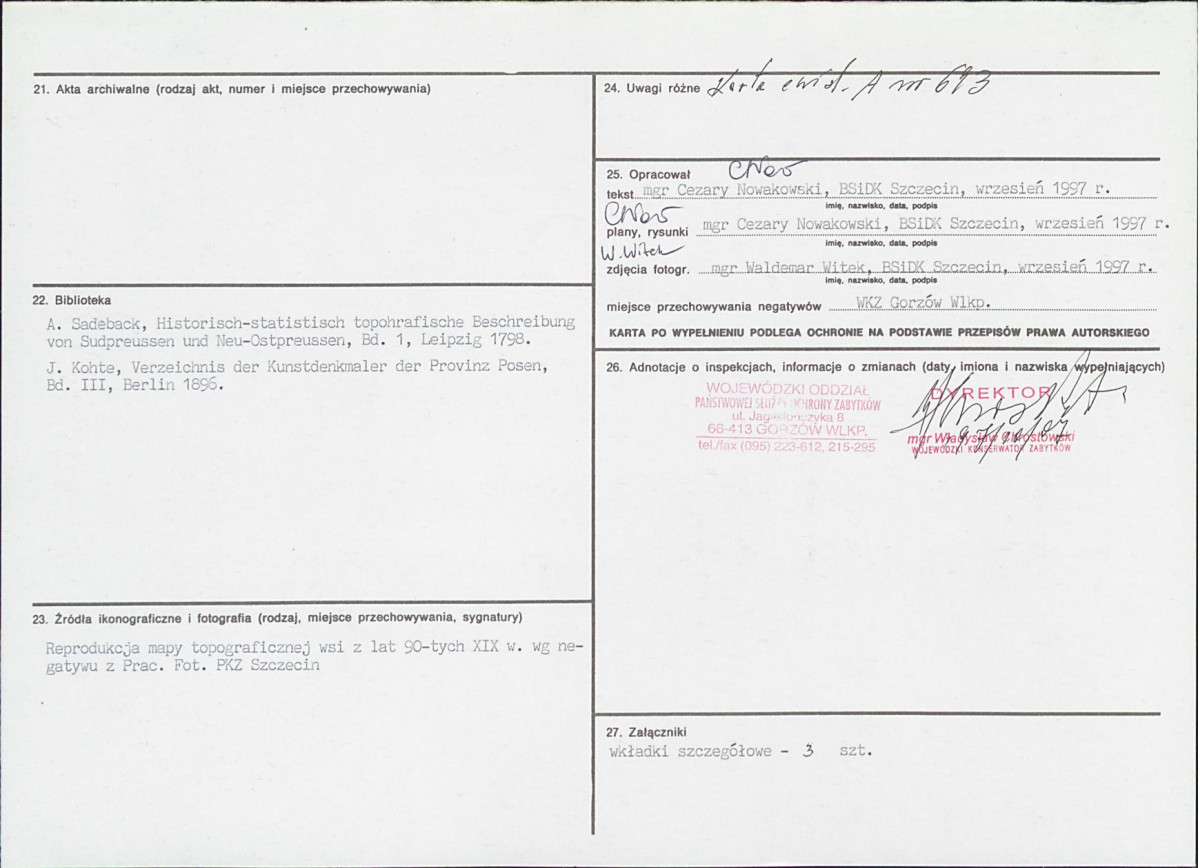 21. Akta archiwalne (rodzaj akt, numer i miejsce przechowywania)
22. Biblioteka
A. Sadeback, Historisch-statistisch topohrafische Beschreibung
von Sudpreussen und Neu-Ostpreussen, Bd. 1, Leipzig 1798.
J. Kohte, Verzeichnis der Kunstdenkmaler der Provinz Posen,
Bd. III, Berlin 1896.
23. Źródła ikonograficzne i fotografia (rodzaj, miejsce przechowywania, sygnatury)
Reprodukcja mapy topograficznej wsi z lat 90-tych XIX w. wg ne-
gatywu z Prac. Fot. PKZ Szczecin
24. Uwagi różne Karta ewid. A nr 693
25. Opracował
tekst mgr Cezary Nowakowski, BSiDK Szczecin, wrzesień 1997 r.
imię, nazwisko, data, podpis
plany, rysunki mgr Cezary Nowakowski, BSiDK Szczecin, wrzesień 1997 r.
imię, nazwisko, data, podpis
W. Witek
zdjęcia fotogr. mgr Waldemar Witek, BSiDK Szczecin, wrzesień 1997 r.
imię, nazwisko, data, podpis
miejsce przechowywania negatywów WKZ Gorzów Wlkp.
KARTA PO WYPEŁNIENIU PODLEGA OCHRONIE NA PODSTAWIE PRZEPISÓW PRAWA AUTORSKIEGO
26. Adnotacje o inspekcjach, informacje o zmianach (daty, imiona i nazwiska wypełniających)
WOJEWÓDZKI ODDZIAŁ
PAŃSTWOWEJ SŁUŻBY OCHRONY ZABYTKÓW
ul. Jagiellończyka 8
66-413 GORZÓW WLKP.
tel./fax (095) 223-612, 215-295
DYREKTOR
mgr Władysław Chrostowski
WOJEWÓDZKI KONSERWATOR ZABYTKÓW
27. Załączniki
wkładki szczegółowe - 3 szt.